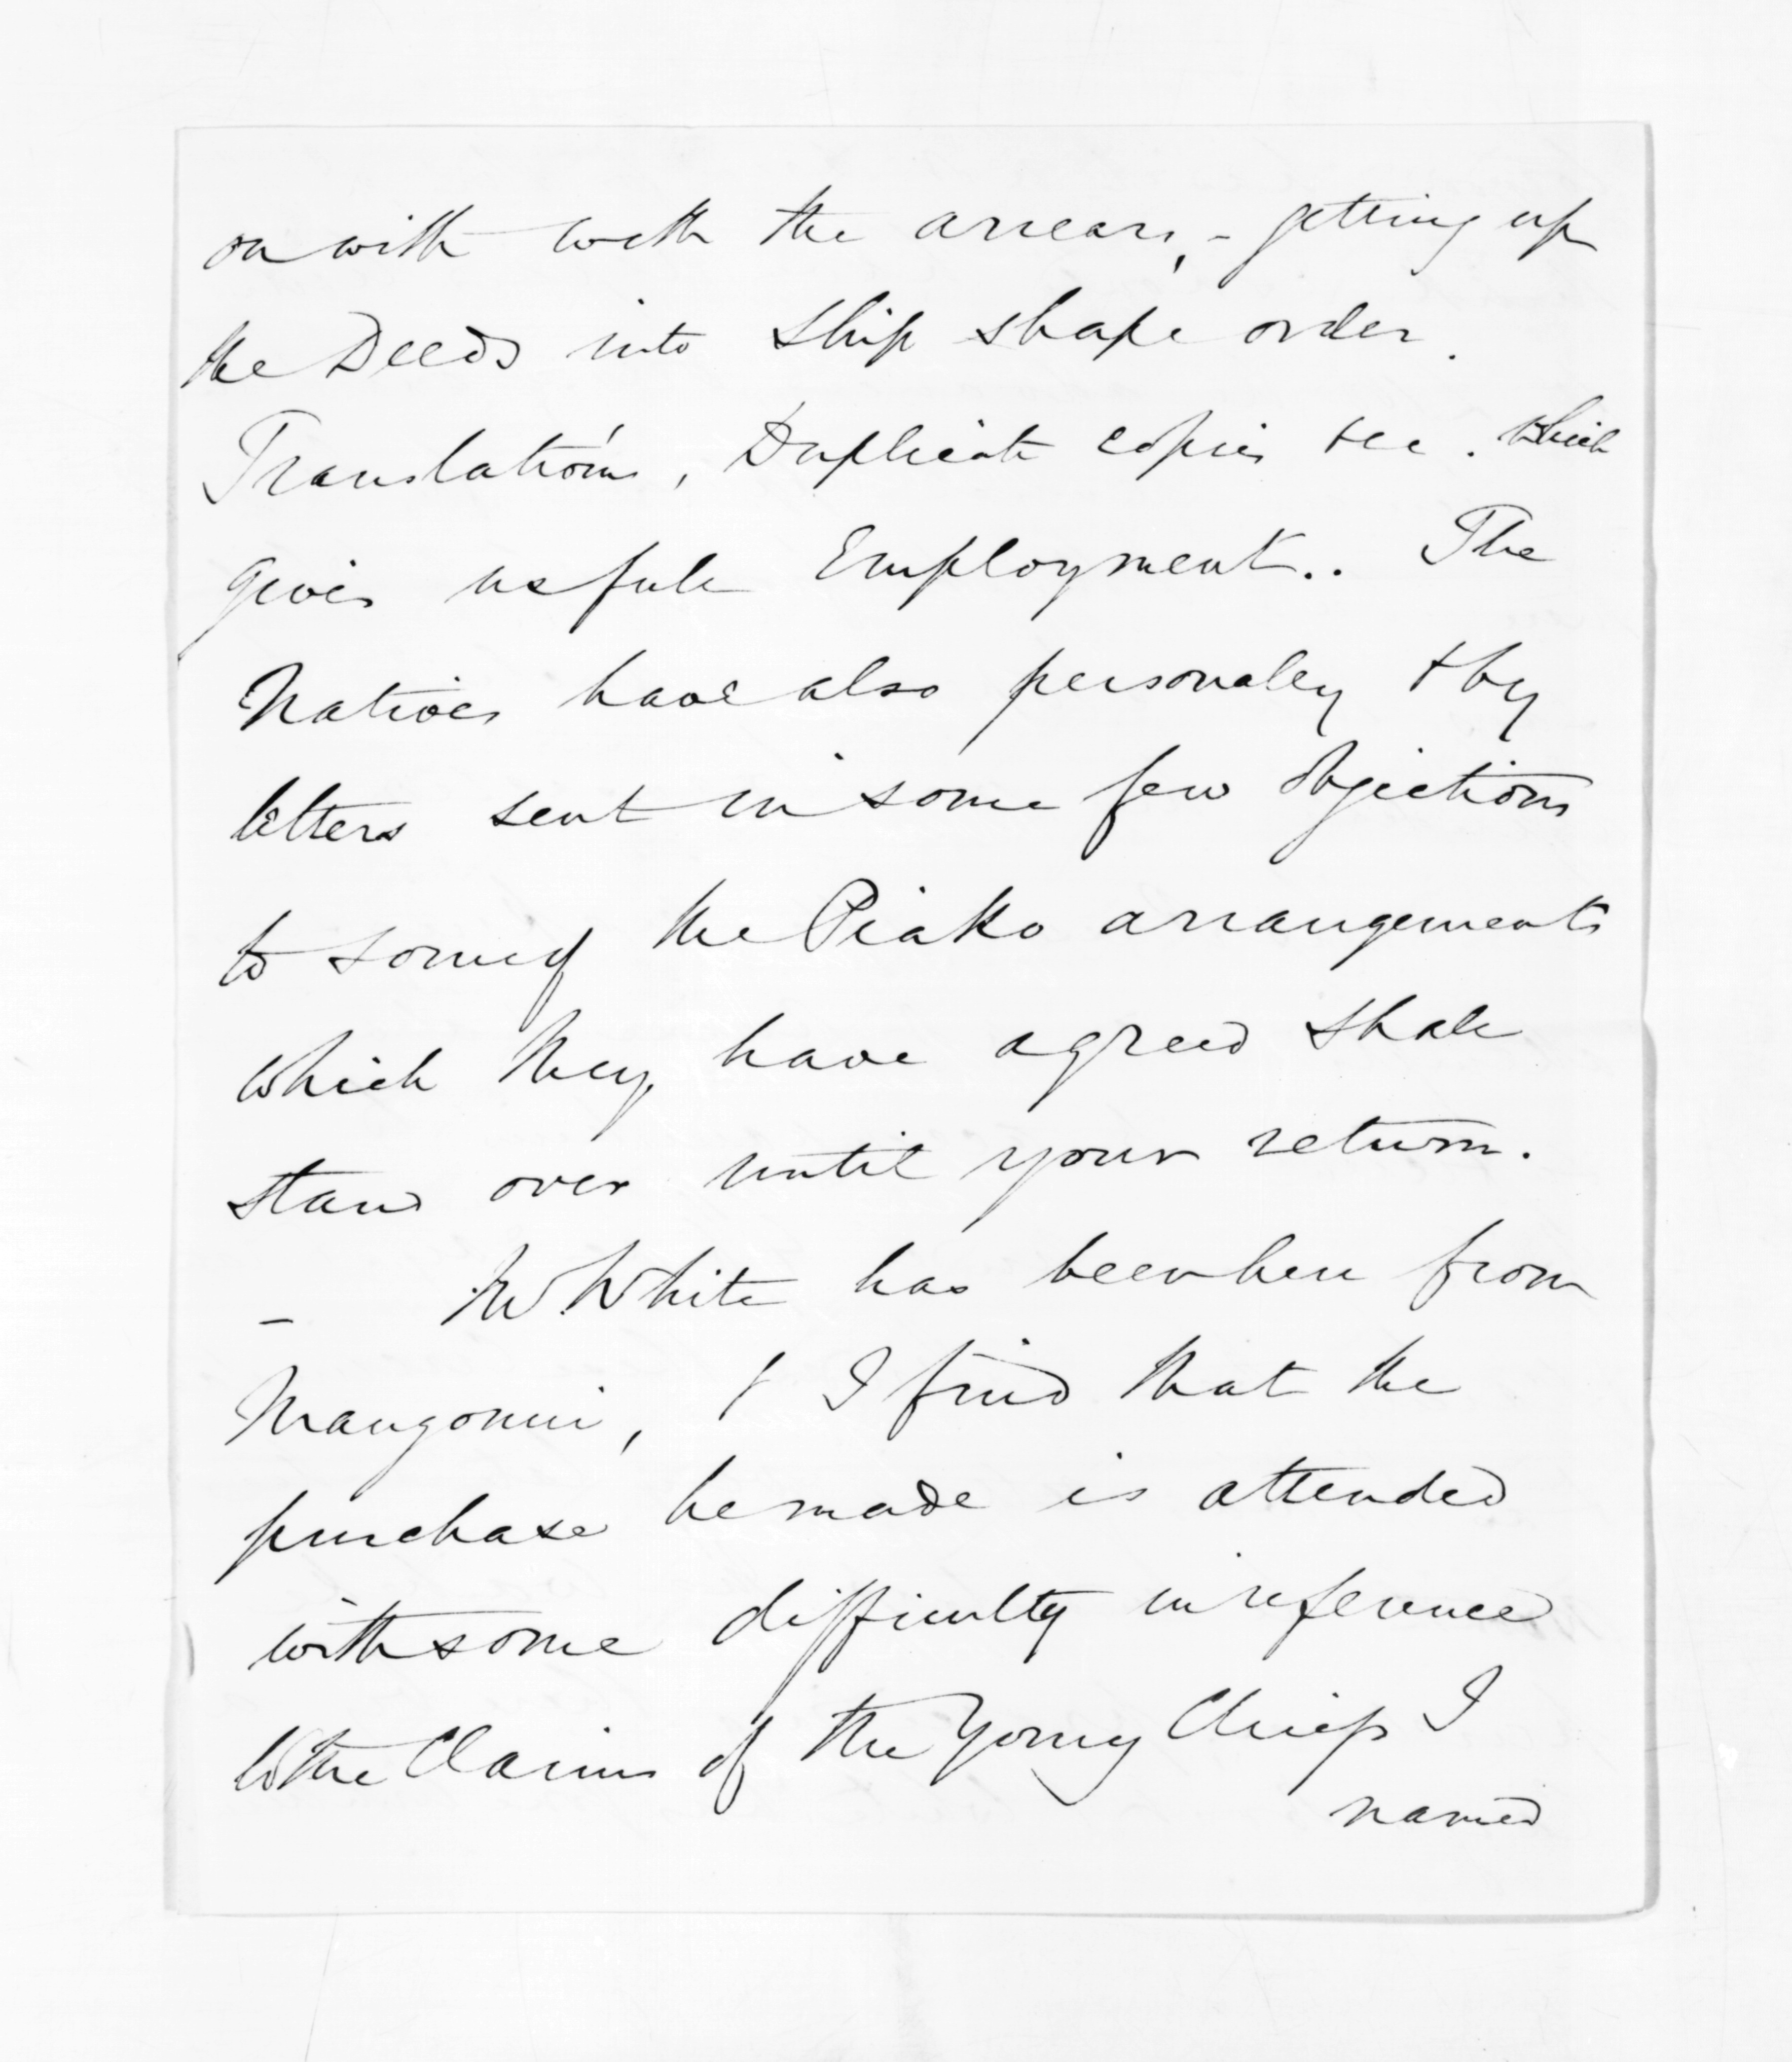 on with with the arrears, - getting up
the Deeds into Ship shape order.
Translations, Duplicate copies &c. which
gives usefull Employment.. The
Natives have also personally & by
letters sent in some few objections
to some of the Piako arrangements
which they have agreed shall
stand over until your return.
- Mr White has been here from
Mangonui, & I find that the
purchase he made is attended
with some difficulty in reference
to the Claims of the Young Chiefs I
named